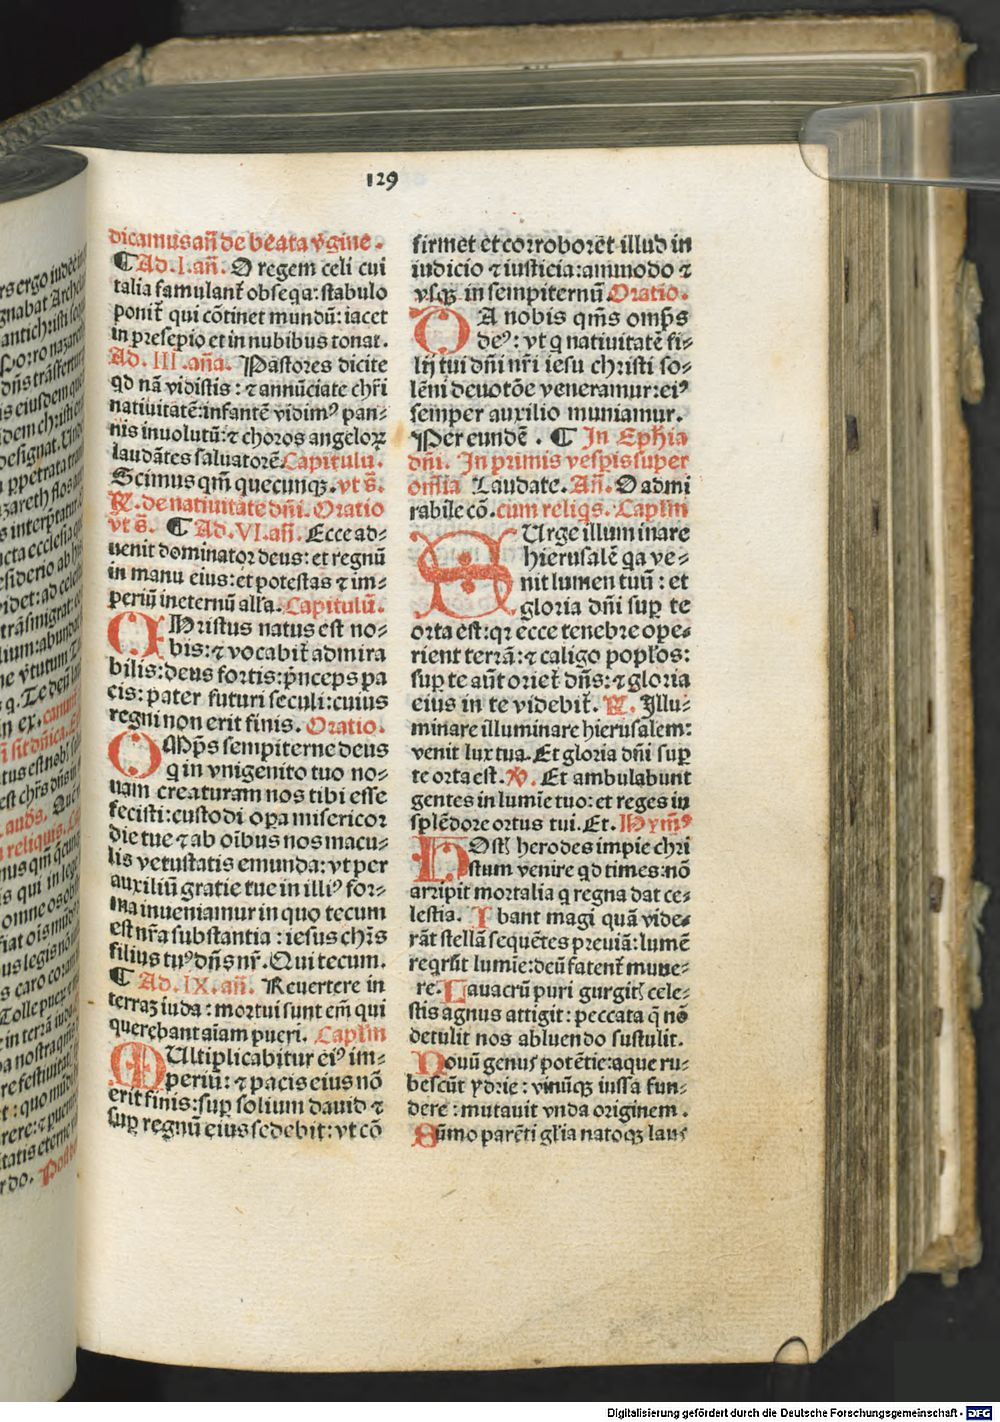 129
dicamus añ de beata v̾gine.
¶ Ad. I. añ. O regem celi cui
talia famulant᷑ obseqa: stabulo
ponit᷑ qui cōtinet mundū: iacet
in presepio et in nubibus tonat.
Ad. III. aña. Pastores dicite
qd nā vidistis: ⁊ annūciate chr̄i
natiuitatē: infantē vidimꝰ pan-
nis inuolutū: ⁊ choros angeloꝝ
laudātes saluatorē. Capitulu.
Scimus qm̄ quecunqꝫ. vt s̄.
℟. de natiuitate dn̄i. Oratio
vt s̄. ¶ Ad. VI. añ. Ecce ad-
uenit dominator deus: et regnū
in manu eius: et potestas ⁊ im-
periū in eternū all'a. Capitulū.
CHristus natus est no-
bis: ⁊ vocabit᷑ admira
bilis: deus fortis: p̄nceps pa
cis: pater futuri seculi: cuius
regni non erit finis. Oratio.
OMp̄s sempiterne deus
q in vnigenito tuo no-
uam creaturam nos tibi esse
fecisti: custodi oꝑa misericor
die tue ⁊ ab oībus nos macu-
lis vetustatis emunda: vt per
auxiliū gratie tue in illiꝰ for-
ma inueniamur in quo tecum
est nr̄a substantia: iesus chr̄s
filius tuꝰ dn̄s nr̄. Qui tecum.
¶ Ad. IX. añ. Reuertere in
terraꝫ iuda: mortui sunt em̄ qui
querebant aīam pueri. Capl'm
MUltiplicabitur eiꝰ im-
periū: ⁊ pacis eius nō
erit finis: suꝑ solium dauid ⁊
suꝑ regnū eius sedebit: vt cō
firmet et corroborēt illud in
iudicio ⁊ iusticia: ammodo ⁊
vsqꝫ in sempiternū. Oratio.
DA nobis qm̄s omp̄s
deꝰ: vt q natiuitatē fi-
lij tui dn̄i nr̄i iesu christi so-
lēni deuotōe veneramur: eiꝰ
semper auxilio muniamur.
Per eundē. ¶ In Eph'ia
dn̄i. In primis vesꝑis super
om̄ia Laudate. Añ. O admi
rabile cō. cum reliqs. Capl'm
SUrge illuminare
hierusalē qa ve-
nit lumen tuū: et
gloria dn̄i suꝑ te
orta est: qꝛ ecce tenebre ope-
rient terrā: ⁊ caligo popl'os:
suꝑ te aūt oriet᷑ dn̄s: ⁊ gloria
eius in te videbit᷑. ℟. Illu-
minare illuminare hierusalem:
venit lux tua. Et gloria dn̄i suꝑ
te orta est. ℣. Et ambulabunt
gentes in lumīe tuo: et reges in
splēdore ortus tui. Et. Hymꝰ
HOstꝭ herodes impie chri
stum venire qd times: nō
arripit mortalia q regna dat ce-
lestia. Ibant magi quā vide-
rāt stellā sequētes preuiā: lumē
reqrūt lumīe: deū fatent᷑ mune-
re. Lauacrū puri gurgitꝭ cele-
stis agnus attigit: peccata q̄ nō
detulit nos abluendo sustulit.
Nouū genus potētie: aque ru-
bescūt ydrie: vinūqꝫ iussa fun-
dere: mutauit vnda originem.
Sūmo parēti gl'ia natoqꝫ laus
Digitalisierung gefördert durch die Deutsche Forschungsgemeinschaft - DFG